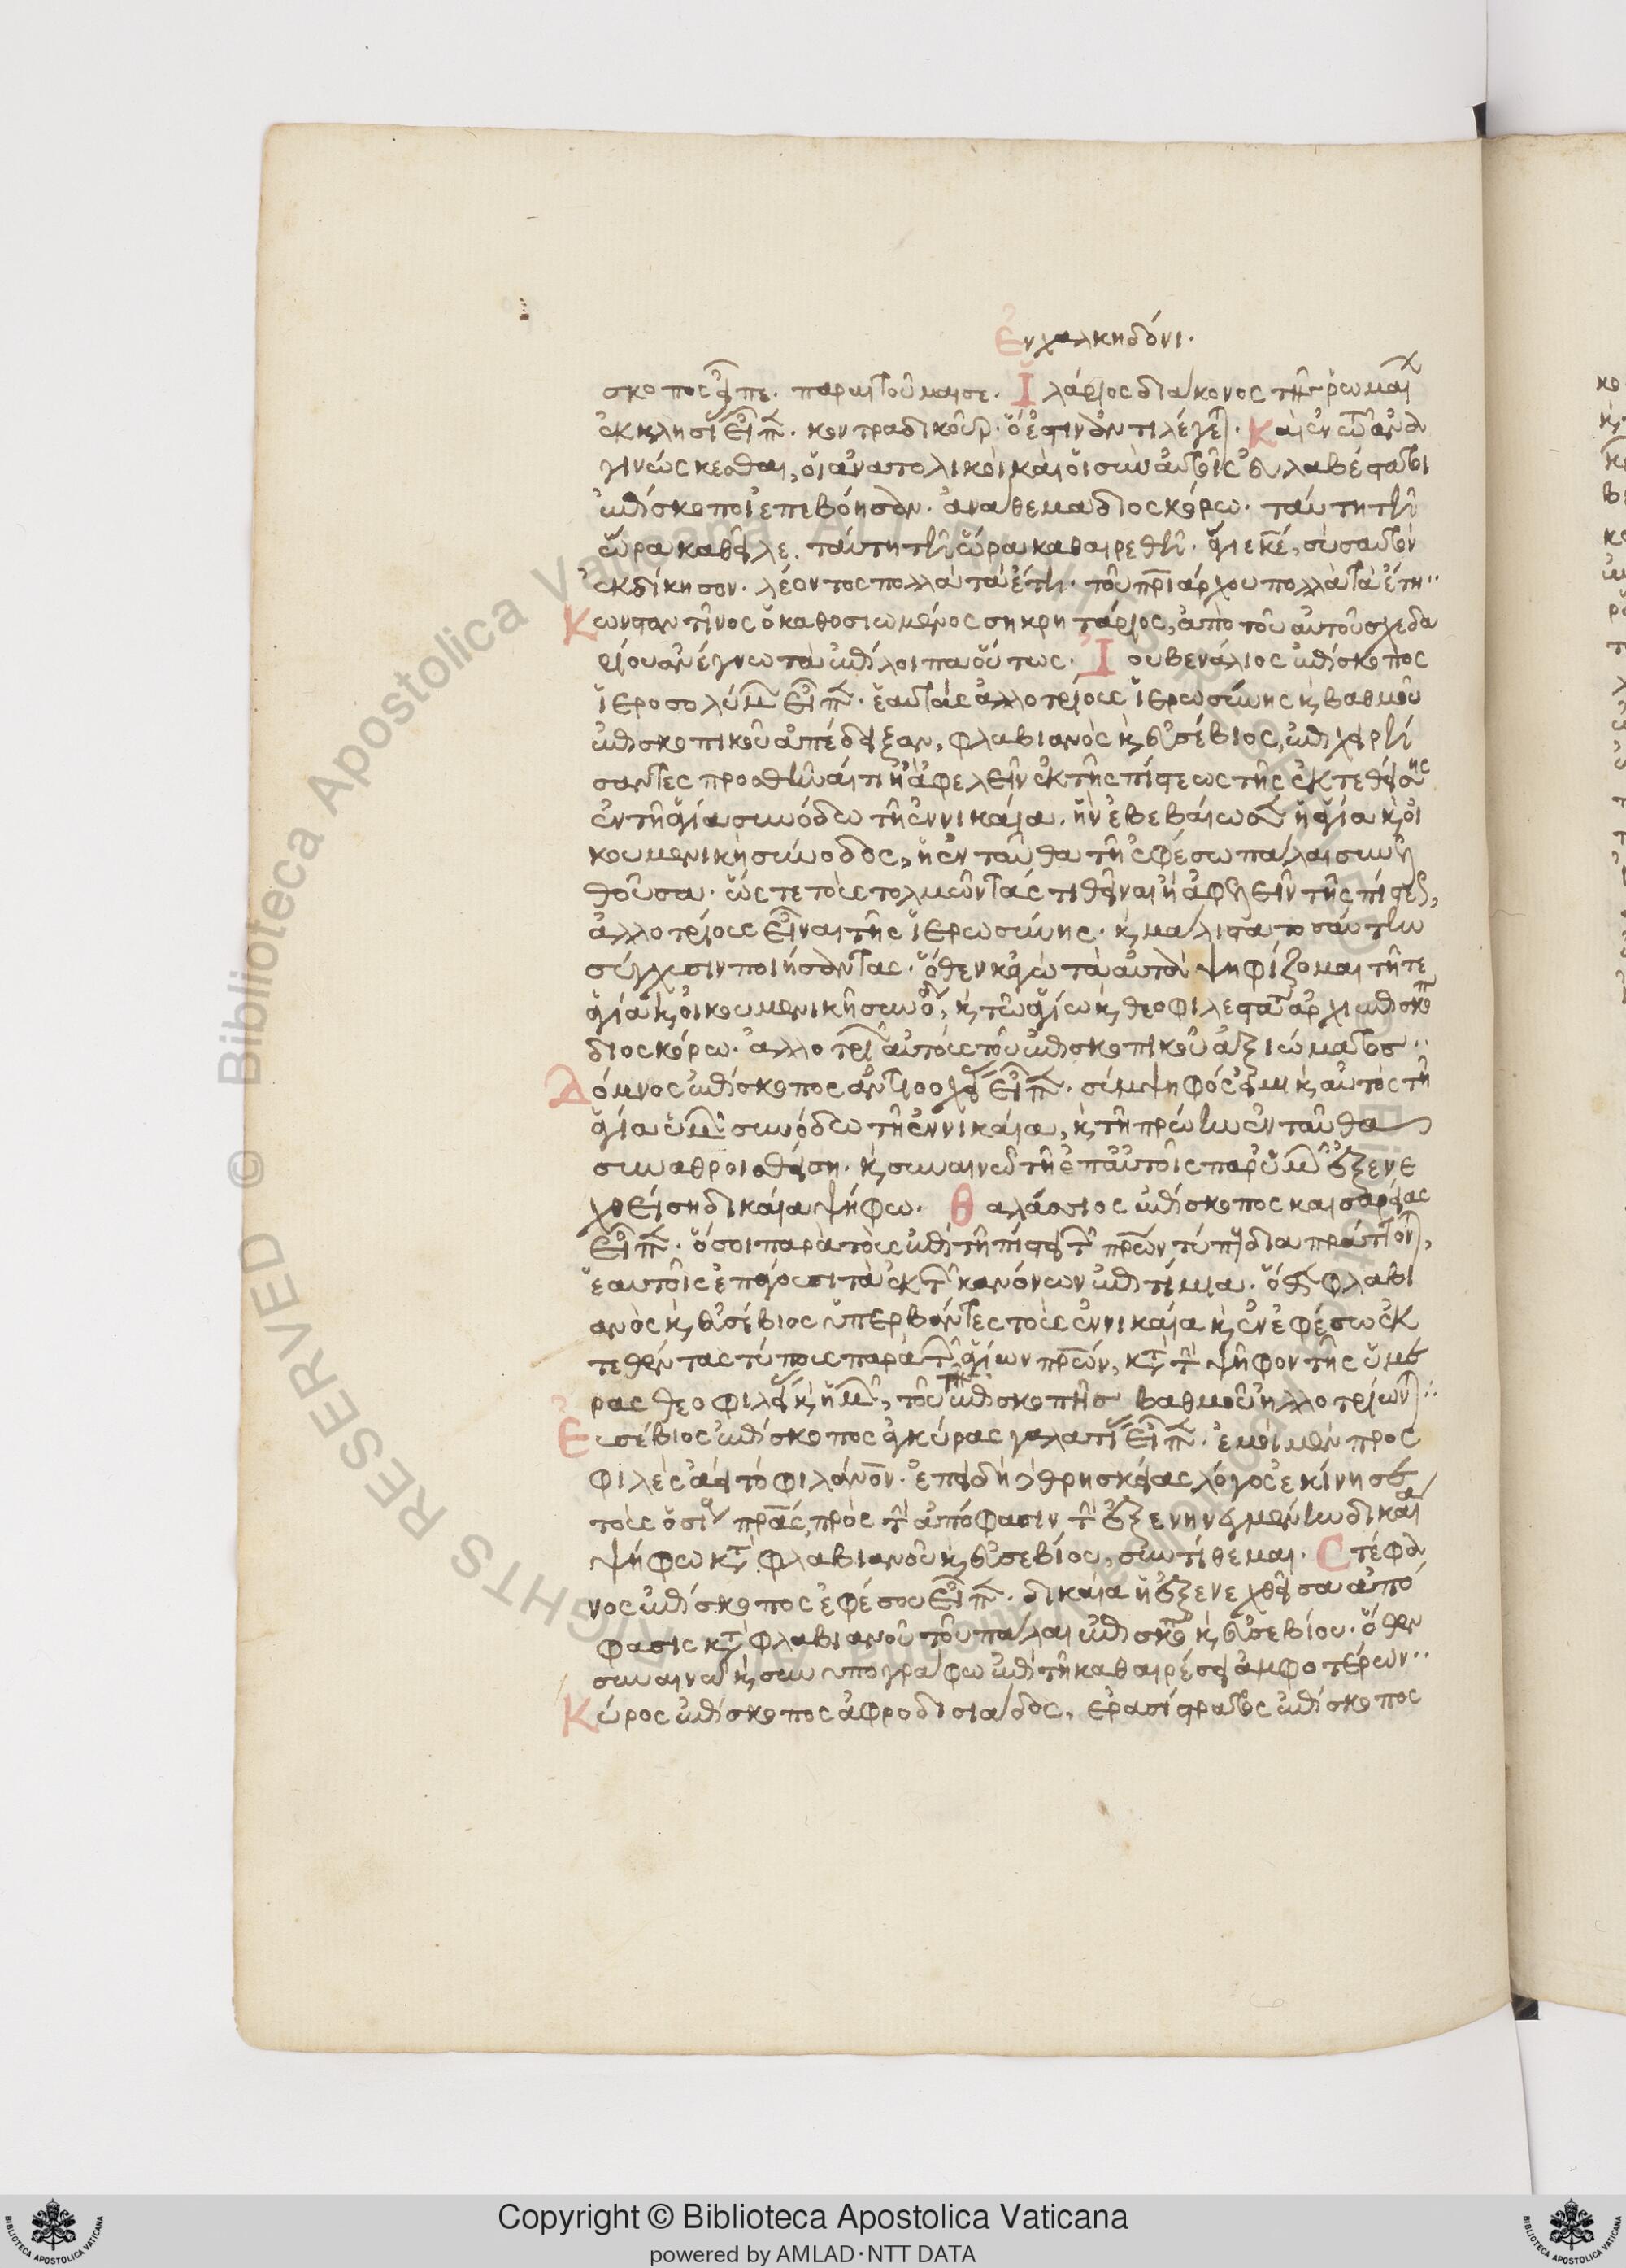 Ἐν χαλκηδόνι.
σκοπος εἶπε. παραιτοῦμαί σε. Ἱλάριος διάκονος τῆς ῥωμαί
ἐκκλησί εἶπ. κοντραδικοῦρ. ὅ ἐστιν ἀντιλέγετ. Καὶ ἐν τῶ ἀνα
γινώσκεσθαι, οἱ ἀνατολικοὶ καὶ οἱ σὺν αὐτοῖς εὐλαβέστατοι
ἐπίσκοποι ἐπεβόησαν. ἀναθεμα διοσκόρω. ταύτη τῆ
ὥρα καθεῖλε. ταύτη τῆ ὥρα καθαιρεθῆ. ἅγιε κε, σὺ αὐτὸν
ἐκδίκησον. λέοντος πολλὰ τὰ ἔτη. τοῦ πριάρχου πολλὰ τὰ ἔτη..
Κωνσταντῖνος ὁ καθοσιωμένος σηκρητάριος, ἀπὸ τοῦ αὐτοῦ σχεδα
ρίου ἀνέγνω τὰ ἐπίλοιπα οὕτως. Ἰουβενάλιος ἐπίσκοπος
ἱεροσολύμ εἶπ. ἑαυτοὺς ἀλλοτρίους ἱερωσύνης κ βαθμοῦ
ἐπισκοπικοῦ ἀπέδειξαν, φλαβιανὸς κ εὐσέβιος, ἐπιχειρή
σαντες προσθῆναί τι ἢ ἀφελεῖν ἐκ τῆς πίστεως τῆς ἐκτεθείσης
ἐν τῆ ἁγία συνόδω τῆ ἐν νικαία. ἣν ἐβεβαίωσεν ἡ ἁγία κ οἰ
κουμενικὴ σύνοδος, ἡ ἐνταῦθα τῆ ἐφέσω πάλαι συνελ
θοῦσα. ὥστε τοὺς τολμῶντάς τι θεῖναι ἢ ἀφελεῖν τῆς πίστεως,
ἀλλοτρίους εἶναι τῆς ἱερωσύνης. κ μάλιστα τοσαύτην
σύγχυσιν ποιήσαντας. ὅθεν κἀγὼ τὰ αὐτὰ ψηφίζομαι τῆ τε
ἁγία κ οἰκουμενικῆ συνόδ, κ τῶ ἁγίω κ θεοφιλεστάτ ἀρχιεπισκόπ
διοσκόρω. ἀλλοτρί αὐτοὺς τοῦ ἐπισκοπικοῦ ἀξιώματος..
Δόμνος ἐπίσκοπος ἀντιοχεί εἶπ. σύμψηφός εἰμι κ αὐτὸς τῆ
ἁγία ὑμῶν συνόδω τῆ ἐν νικαία, κ τῆ πρώην ἐνταῦθα
συναθροισθείση. κ συναινῶ τῆ ἐπ αὐτοῖς παρ ὑμῶν ἐξενε
χθείση δικαία ψήφω. Θαλάσσιος ἐπίσκοπος καισαρείας
εἶπ. ὅσοι παρὰ τοὺς ἐπὶ τῆ πίστει τῶν πρων τύπους διαπράττοντ,
ἑαυτοῖς ἐπάγουσι τὰ ἐκ τῶν κανόνων ἐπιτίμια. ὅθεν φλαβι
ανὸς κ εὐσέβιος ὑπερβάντες τοὺς ἐν νικαία κ ἐν ἐφέσω ἐκ
τεθέντας τύπους παρὰ τῶν ἁγίων πρων, κτ τὴν ψῆφον τῆς ὑμετέ
ρας θεοφιλεί κ ἡμῶν, τοῦ τῆς ἐπισκοπῆς βαθμοῦ ἠλλοτρίωντ..
Εὐσέβιος ἐπίσκοπος ἀγκύρας γαλατί εἶπ. ἐμοὶ μὲν προς
φιλὲς ἀεὶ τὸ φιλάνον. ἐπειδὴ θρησκείας λόγος ἐκίνησε
τοὺς ὁσίους πρας, πρὸς τὴν ἀπόφασιν. τῆ ἐξενηνεγμένη δικαί
ψήφω κτ φλαβιανοῦ κ εὐσεβίου, συντίθεμαι. Στέφα
νος ἐπίσκοπος ἐφέσου εἶπ. δικαία ἡ ἐξενεχθεῖσα ἀπό
φασις κτ φλαβιανοῦ τοῦ πάλαι ἐπισκόπ κ εὐσεβίου. ὅθεν
συναινῶ κ συνυπογράφω ἐπὶ τῆ καθαιρέσει ἀμφοτέρων..
Κύρος ἐπίσκοπος ἀφροδισιάδος. ἐρασίστρατος ἐπίσκοπος
Copyright © Biblioteca Apostolica Vaticana
powered by AMLAD·NTT DATA